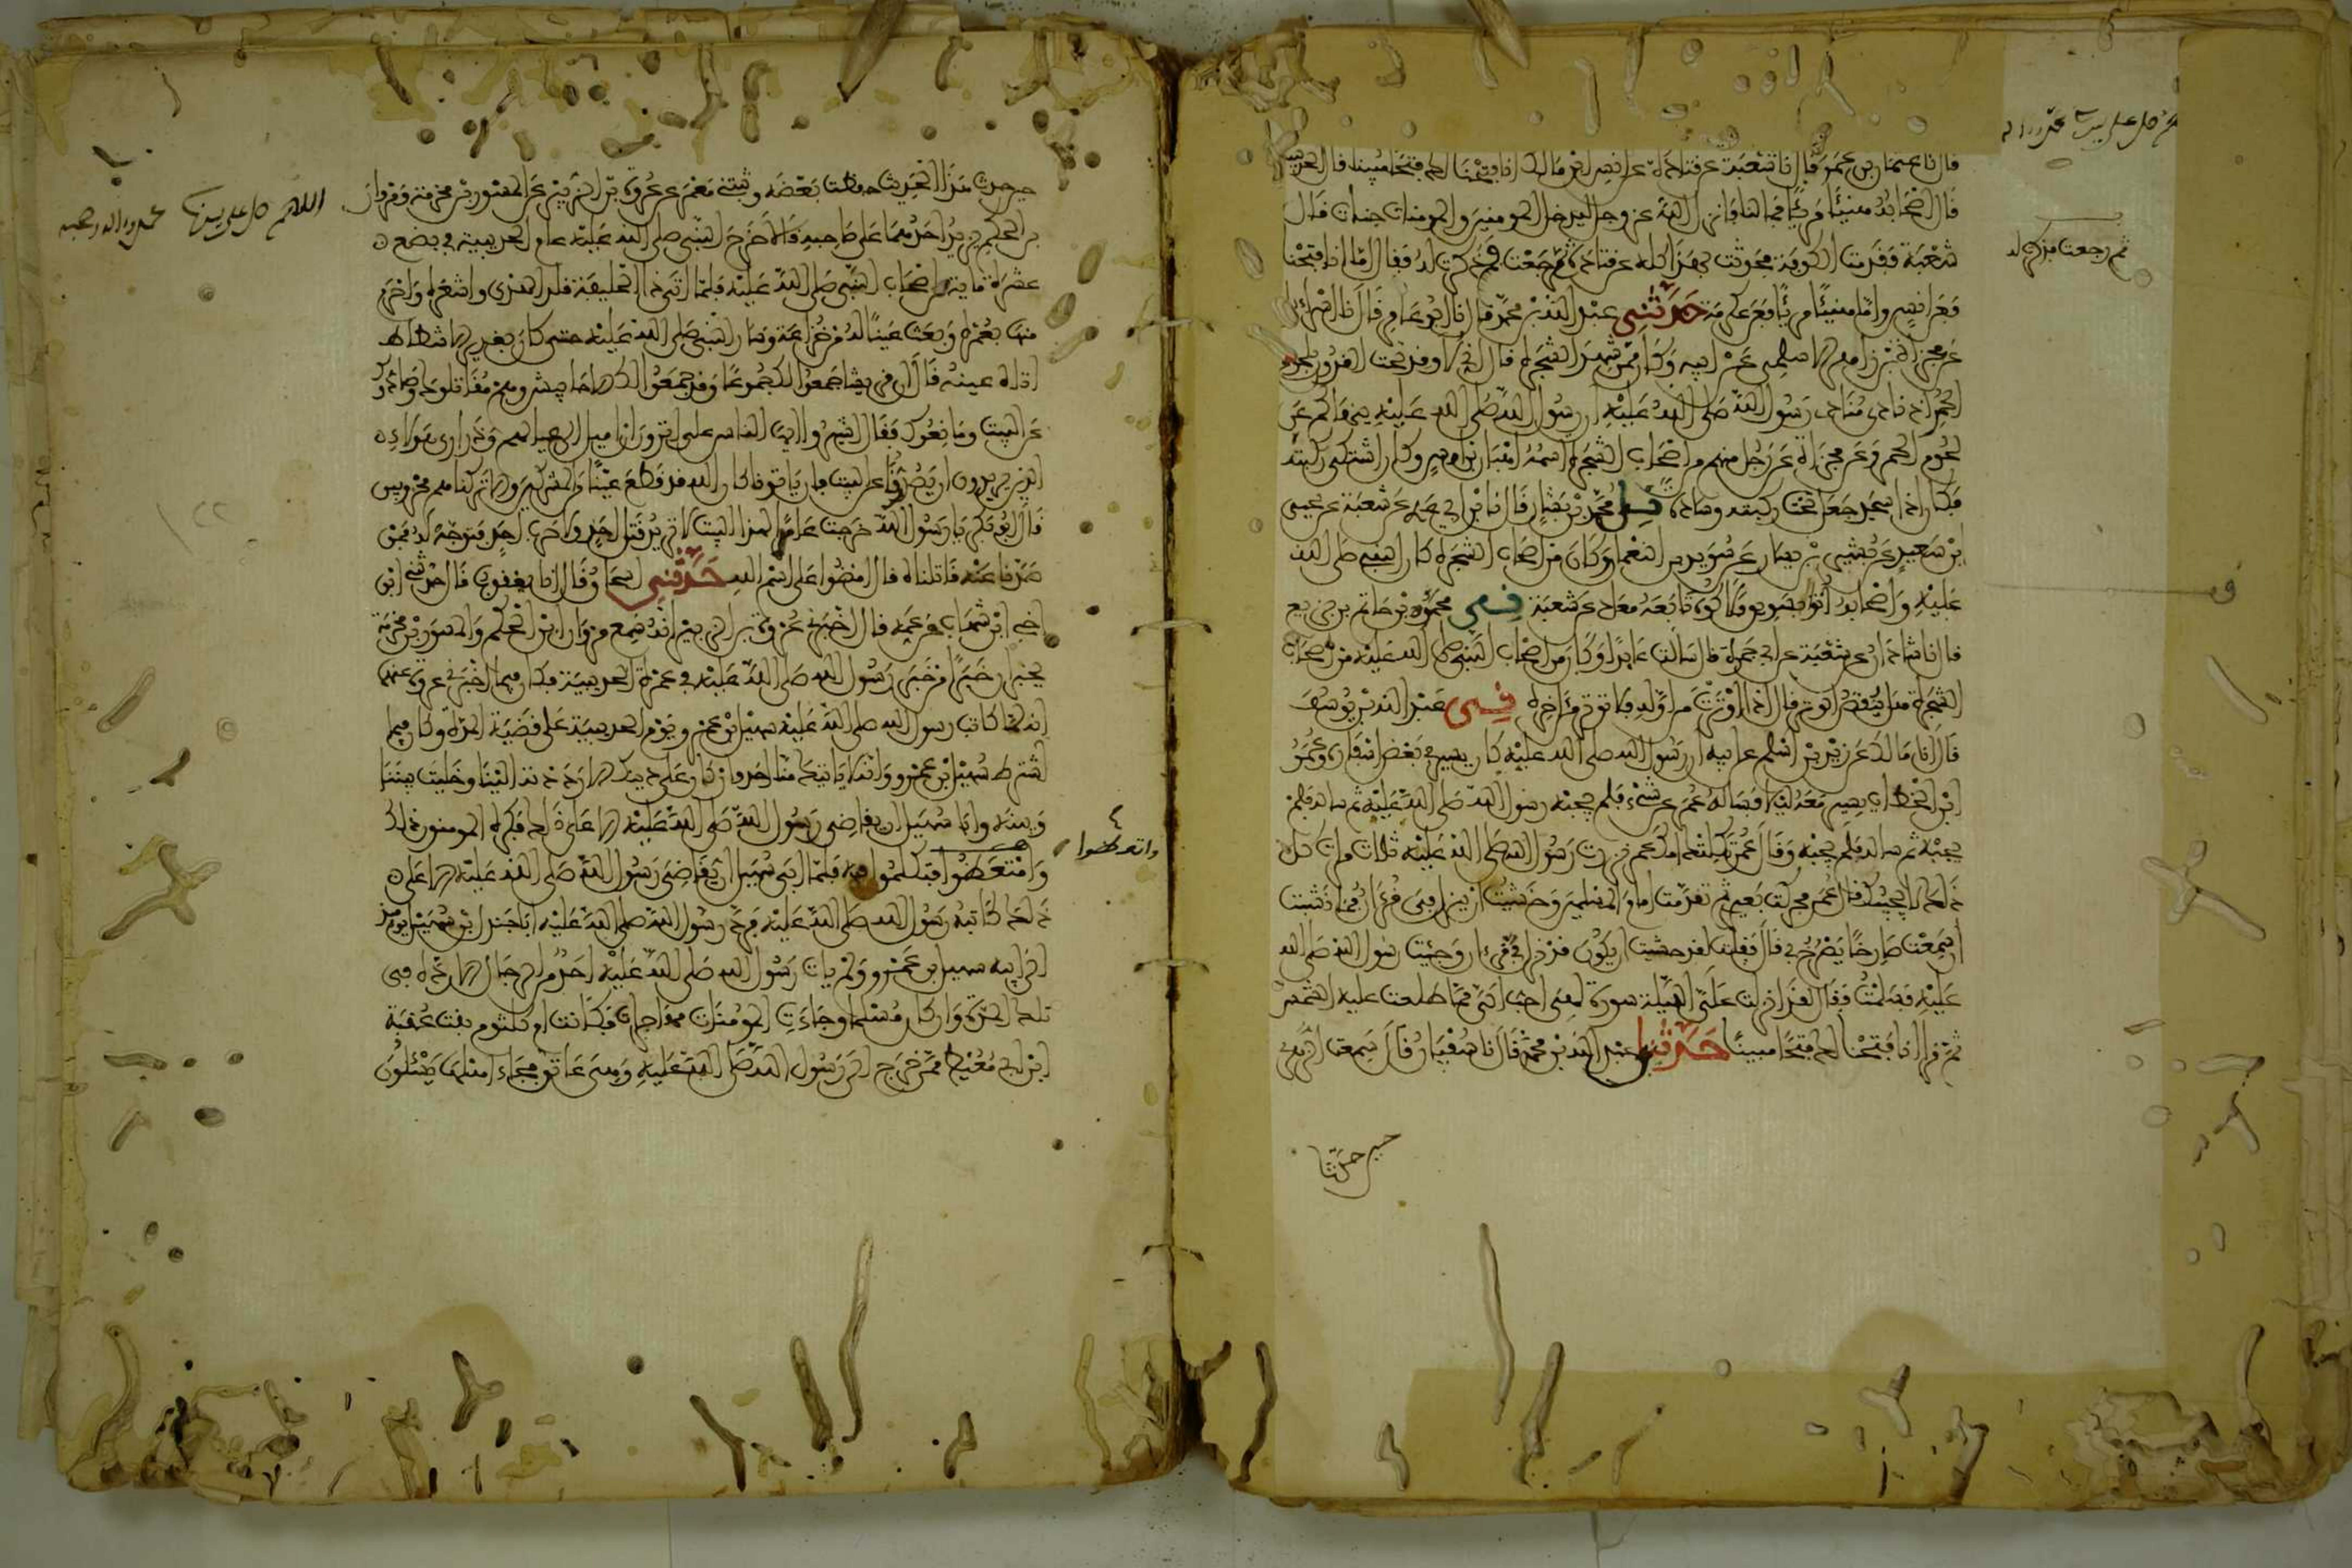 قال نا عثمان بن عمر قال نا شعبة عن قتادة عن انس ابن مالك انا فتحنا لك فتحا مبينا قال الحديبية
قال اصحابه هنيئا مريئا فما لنا فانزل الله عز وجل ليدخل المومنين والمومنات جنات قال
شعبة فقدمت الكوفة فحدثت بهذا كله عن قتادة ثم رجعت فذكرت له فقال اما انا فتحنا
فعن انس واما هنيئا مريئا فعن عكرمة حدثني عبد الله بن محمد قال نا ابو عامر قال نا اسراءيل
عن مجزاة بن زاهر الاسلمي عن ابيه وكان ممن شهد الشجرة قال اني لاوقد تحت القدور بلحوم
الحمر اذ نادى منادي رسول الله صلى الله عليه ان رسول الله صلى الله عليه ينهاكم عن
لحوم الحمر وعن مجزاة عن رجل منهم من اصحاب الشجرة اسمه اهبان بن اوس وكان اشتكى ركبته
فكان اذا سجد جعل تحت ركبته وسادة محمد بن بشار قال نا ابن ابي عدي عن شعبة عن يحيى
بن سعيد عن بشير بن يسار عن سويد بن النعمان وكان من اصحاب الشجرة كان النبي صلى الله
عليه واصحابه اتوا بسويق فلاكوه تابعه معاذ عن شعبة محمد بن حاتم بن بزيع
قال نا شاذان عن شعبة عن ابي جمرة قال سالت عايذا وكان من اصحاب النبي صلى الله عليه من اصحاب
الشجرة هل ينقض الوتر قال اذا اوترت من اوله فلا توتر من اخره عبد الله بن يوسف
قال انا مالك عن زيد بن اسلم عن ابيه ان رسول الله صلى الله عليه كان يسير في بعض اسفاره وعمر
ابن الخطاب يسير معه ليلا فساله عمر عن شيء فلم يجبه رسول الله صلى الله عليه ثم ساله فلم
يجبه ثم ساله فلم يجبه وقال عمر ثكلتك امك عمر نزرت رسول الله صلى الله عليه ثلاث مرات كل
ذلك لا يجيبك قال عمر فحركت بعيري ثم تقدمت امام المسلمين وخشيت ان ينزل في قرءان فما نشبت
ان سمعت صارخا يصرخ بي قال فقلت لقد خشيت ان يكون قد نزل في قرءان وجئت رسول الله صلى الله
عليه فسلمت فقال لقد انزلت علي الليلة سورة لهي احب الي مما طلعت عليه الشمس
ثم قرا انا فتحنا لك فتحا مبينا حدثني عبد الله بن محمد قال نا سفيان قال سمعت الزهري
حين حدثنا
ثم رجعت فذكرت له
حين حدث هذا الحديث حفظت بعضه وثبتني معمر عن عروة بن الزبير عن المسور بن مخرمة ومروان
بن الحكم يزيد احدهما على صاحبه قالا خرج النبي صلى الله عليه عام الحديبية في بضع
عشرة ماية من اصحاب النبي صلى الله عليه فلما اتى ذا الحليفة قلد الهدي واشعره واحرم
منها بعمرة وبعث عينا له من خزاعة وسار النبي صلى الله عليه حتى كان بغدير الاشطاط
اتاه عينه قال ان قريشا جمعوا لك جموعا وقد جمعوا لك الاحابيش وهم مقاتلوك وصادوك
عن البيت ومانعوك فقال اشيروا ايها الناس علي اترون ان اميل الى عيالهم وذراري هؤلاء
الذين يريدون ان يصدونا عن البيت فان ياتونا كان الله قد قطع عينا من المشركين والا تركناهم محروبين
قال ابو بكر يا رسول الله خرجت عامدا لهذا البيت لا تريد قتل احد ولا حرب احد فتوجه له فمن
صدنا عنه قاتلناه قال امضوا على اسم الله حدثني اسحاق قال انا يعقوب قال حدثني ابن
اخي ابن شهاب عن عمه قال اخبرني عروة بن الزبير انه سمع مروان ابن الحكم والمسور بن مخرمة
يخبران خبرا من خبر رسول الله صلى الله عليه في عمرة الحديبية فكان فيما اخبرني عروة عنهما
انه لما كاتب رسول الله صلى الله عليه سهيل بن عمرو يوم الحديبية على قضية المدة وكان فيما
اشترط سهيل ابن عمرو وانه لا ياتيك منا احد وان كان على دينك الا رددته الينا وخليت بيننا
وبينه وابا سهيل ان يقاضي رسول الله صلى الله عليه الا على ذلك فكره المومنون ذلك
وامتعضوا فتكلموا فيه فلما ابى سهيل ان يقاضي رسول الله صلى الله عليه الا على
ذلك كاتبه رسول الله صلى الله عليه فرد رسول الله صلى الله عليه ابا جندل بن سهيل يومئذ
الى ابيه سهيل بن عمرو ولم يات رسول الله صلى الله عليه احد من الرجال الا رده في
تلك المدة وان كان مسلما وجاءت المومنات مهاجرات فكانت ام كلثوم بنت عقبة
ابن ابي معيط ممن خرج الى رسول الله صلى الله عليه وهي عاتق فجاء اهلها يسئلون
اللهم صل على سيدنا محمد واله وصحبه